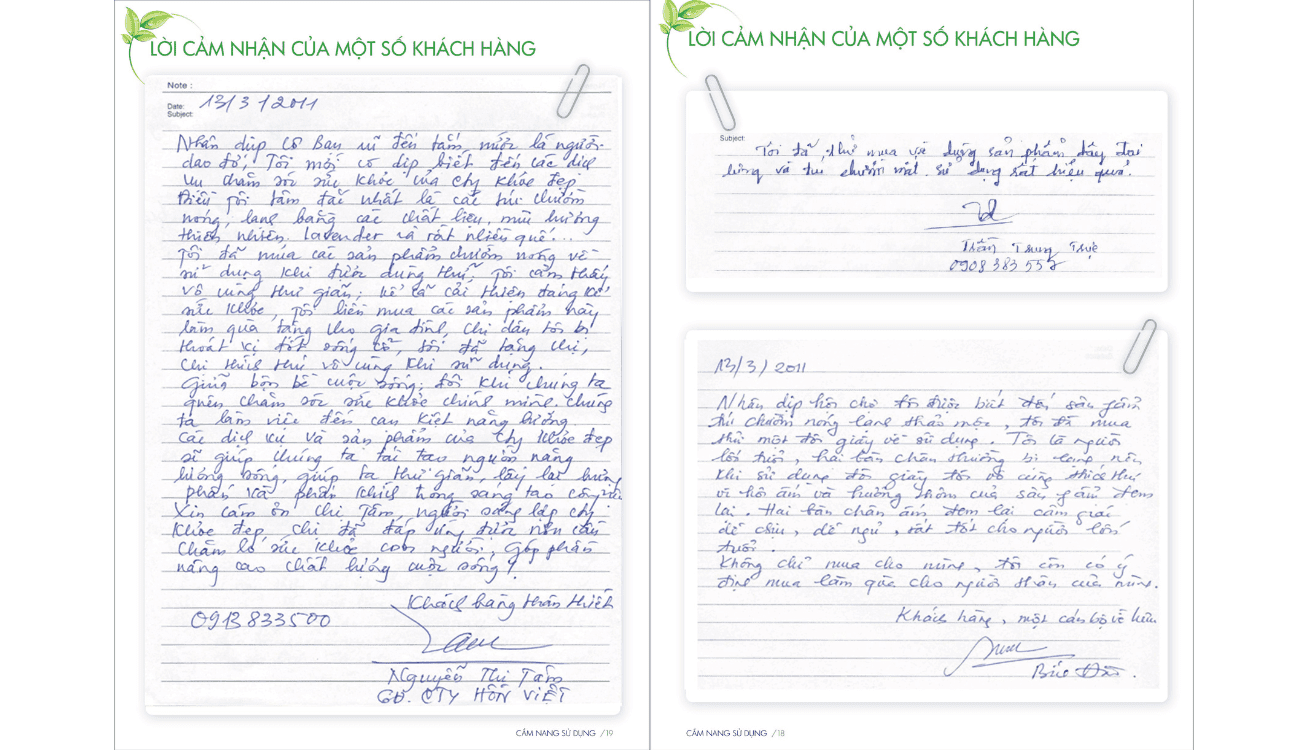 LỜI CẢM NHẬN CỦA MỘT SỐ KHÁCH HÀNG
Note :
Date: 13/3/2011
Subject:
Nhân dịp cô bạn đến tắm, mức là người
dao đỏ, Tôi mới có dịp biết đến các dịch
vụ chăm sóc sức khỏe của Cty Khỏe Đẹp
Điều tôi tâm đắc nhất là các túi chườm
nóng, lạnh bằng các chất liệu, mùi hương
thiên nhiên. lavender và rất nhiều quế...
Tôi đã mua các sản phẩm chườm nóng về
sử dụng khi được dùng thử, Tôi cảm thấy
vô cùng thư giãn, kể cả cải thiện đáng kể
sức khỏe, tôi liền mua các sản phẩm này
làm quà tặng cho gia đình, chị dâu tôi bị
thoát vị đốt sống cổ, tôi đã tặng chị,
chị thích thú vô cùng khi sử dụng.
Giữa bộn bề cuộc sống, đôi khi chúng ta
quên chăm sóc sức khỏe chính mình. chúng
ta làm việc đến cạn kiệt năng lượng.
Các dịch vụ và sản phẩm của Cty Khỏe đẹp
sẽ giúp chúng ta tái tạo nguồn năng
lượng sống, giúp ta thư giãn, lấy lại hưng
phấn và phấn khích trong sáng tạo công việc
Xin cám ơn chị Tâm, người sáng lập cty
Khỏe đẹp, chị đã đáp ứng được nhu cầu
chăm lo sức khỏe con người, góp phần
nâng cao chất lượng cuộc sống!
Khách hàng thân thiết
0913833500
Nguyễn Thị Tâm
GĐ. CTY HỒN VIỆT
CẨM NANG SỬ DỤNG /19
LỜI CẢM NHẬN CỦA MỘT SỐ KHÁCH HÀNG
Subject:
Tôi đã thử mua về dụng sản phẩm dây đai
lưng và túi chườm mắt. sử dụng rất hiệu quả.
Trần Trung Trực
0908383557
13/3/2011
Nhân dịp hội chợ tôi được biết đến sản phẩm
túi chườm nóng lạnh thảo mộc, tôi đã mua
thử một đôi giày về sử dụng. Tôi là người
lớn tuổi, hai bàn chân thường bị lạnh nên
khi sử dụng đôi giày tôi vô cùng thích thú
vì hơi ấm và hương thơm của sản phẩm đem
lại. Hai bàn chân ấm đem lại cảm giác
dễ chịu, dễ ngủ, rất tốt cho người lớn
tuổi.
Không chỉ mua cho mình, tôi còn có ý
định mua làm quà cho người thân của mình.
Khách hàng, một cán bộ về hưu
CẨM NANG SỬ DỤNG /18